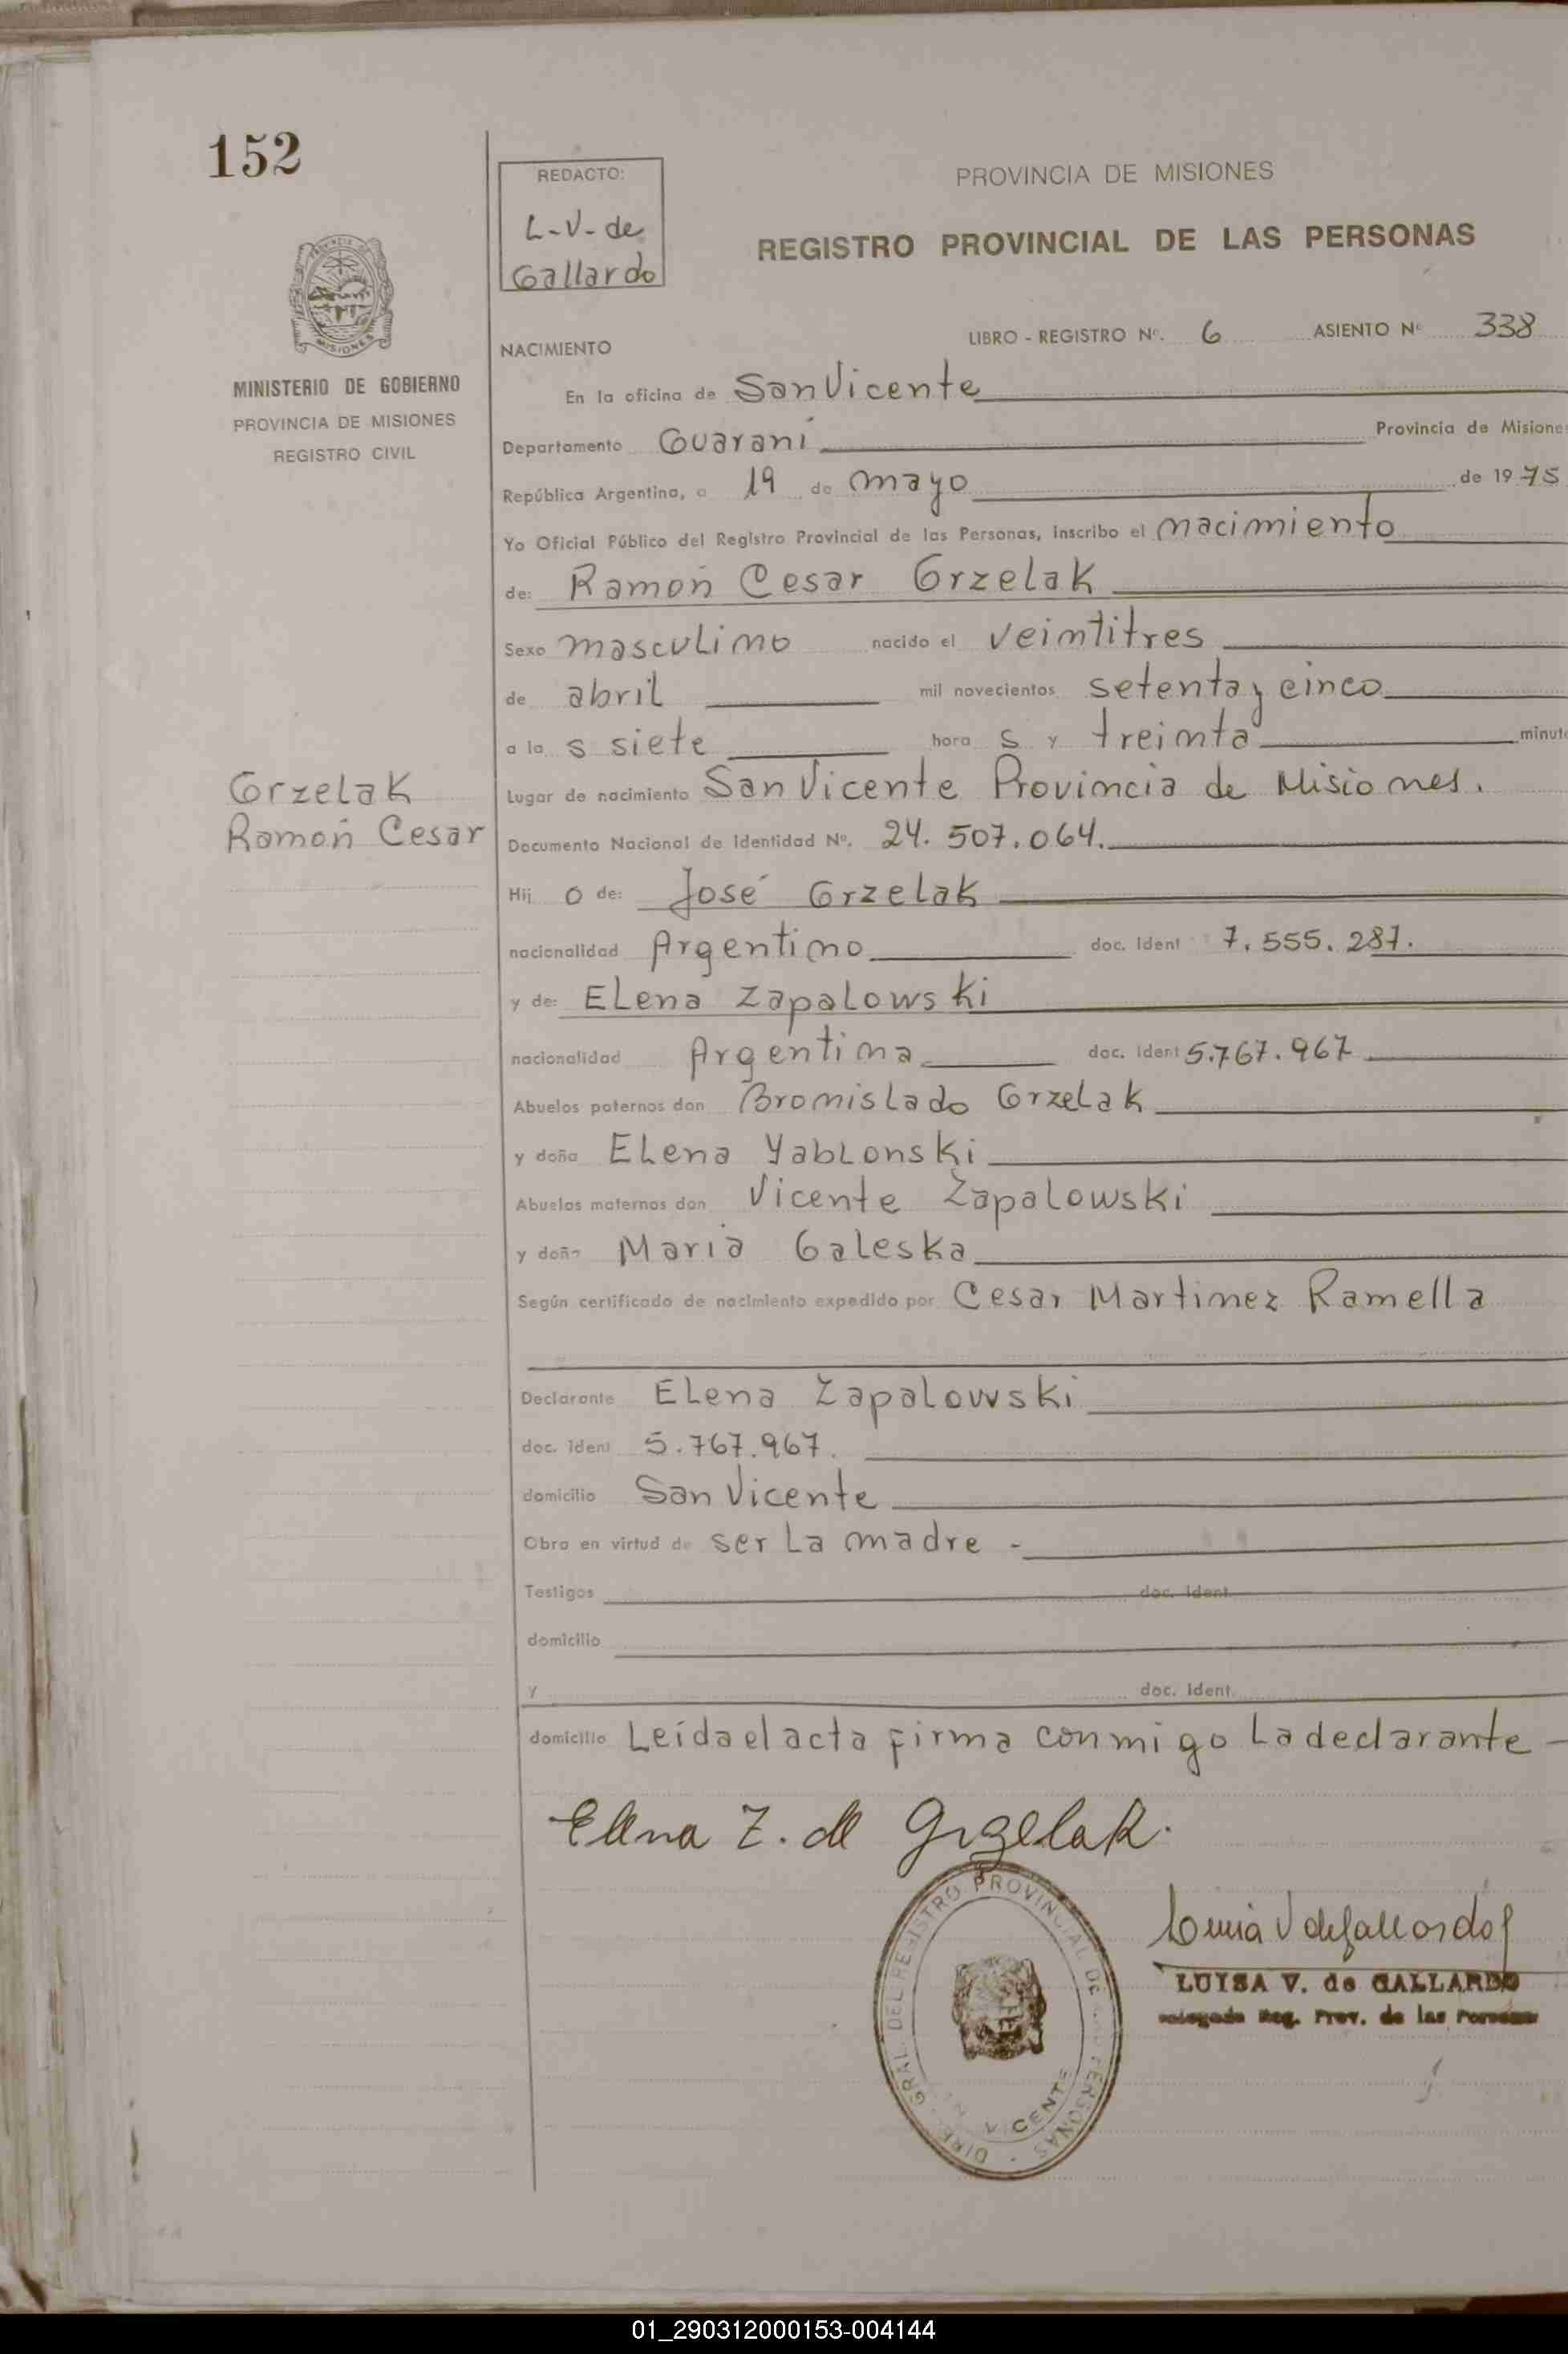 152
REDACTO:
L-V-de
Gallardo
PROVINCIA DE MISIONES
REGISTRO PROVINCIAL DE LAS PERSONAS
MISIONES
MINISTERIO DE GOBIERNO
PROVINCIA DE MISIONES
REGISTRO CIVIL
LIBRO - REGISTRO Nº. 6 ASIENTO Nº 338
NACIMIENTO
En la oficina de San Vicente
Departamento Guaraní Provincia de Misiones
República Argentina, a 19 de mayo de 1975
Yo Oficial Público del Registro Provincial de las Personas, inscribo el nacimiento
de: Ramón Cesar Grzelak
Sexo masculino nacido el veintitres
de abril mil novecientos setenta y cinco
a la s siete hora s y treinta minuto
Grzelak
Ramón Cesar
Lugar de nacimiento San Vicente Provincia de Misiones.
Documento Nacional de Identidad Nº. 24.507.064.
Hij o de: José Grzelak
nacionalidad Argentino doc. Ident 7.555.287.
y de: Elena Zapalowski
nacionalidad Argentina doc. Ident 5.767.967
Abuelos paternos don Bronislado Grzelak
y doña Elena Yablonski
Abuelos maternos don Vicente Zapalowski
y doña Maria Galeska
Según certificado de nacimiento expedido por Cesar Martinez Ramella
Declarante Elena Zapalowski
doc. ident 5.767.967.
domicilio San Vicente
Obra en virtud de ser la madre -
Testigos doc. ident.
domicilio
y doc. Ident.
domicilio Leída el acta firma conmigo la declarante -
Elena Z. de Grzelak.
DIREC. GRAL. DEL REGISTRO PROVINCIAL DE LAS PERSONAS
VICENTE
Luisa V de Gallardo
LUISA V. de GALLARDO
Delegada Reg. Prov. de las Personas
01_290312000153-004144